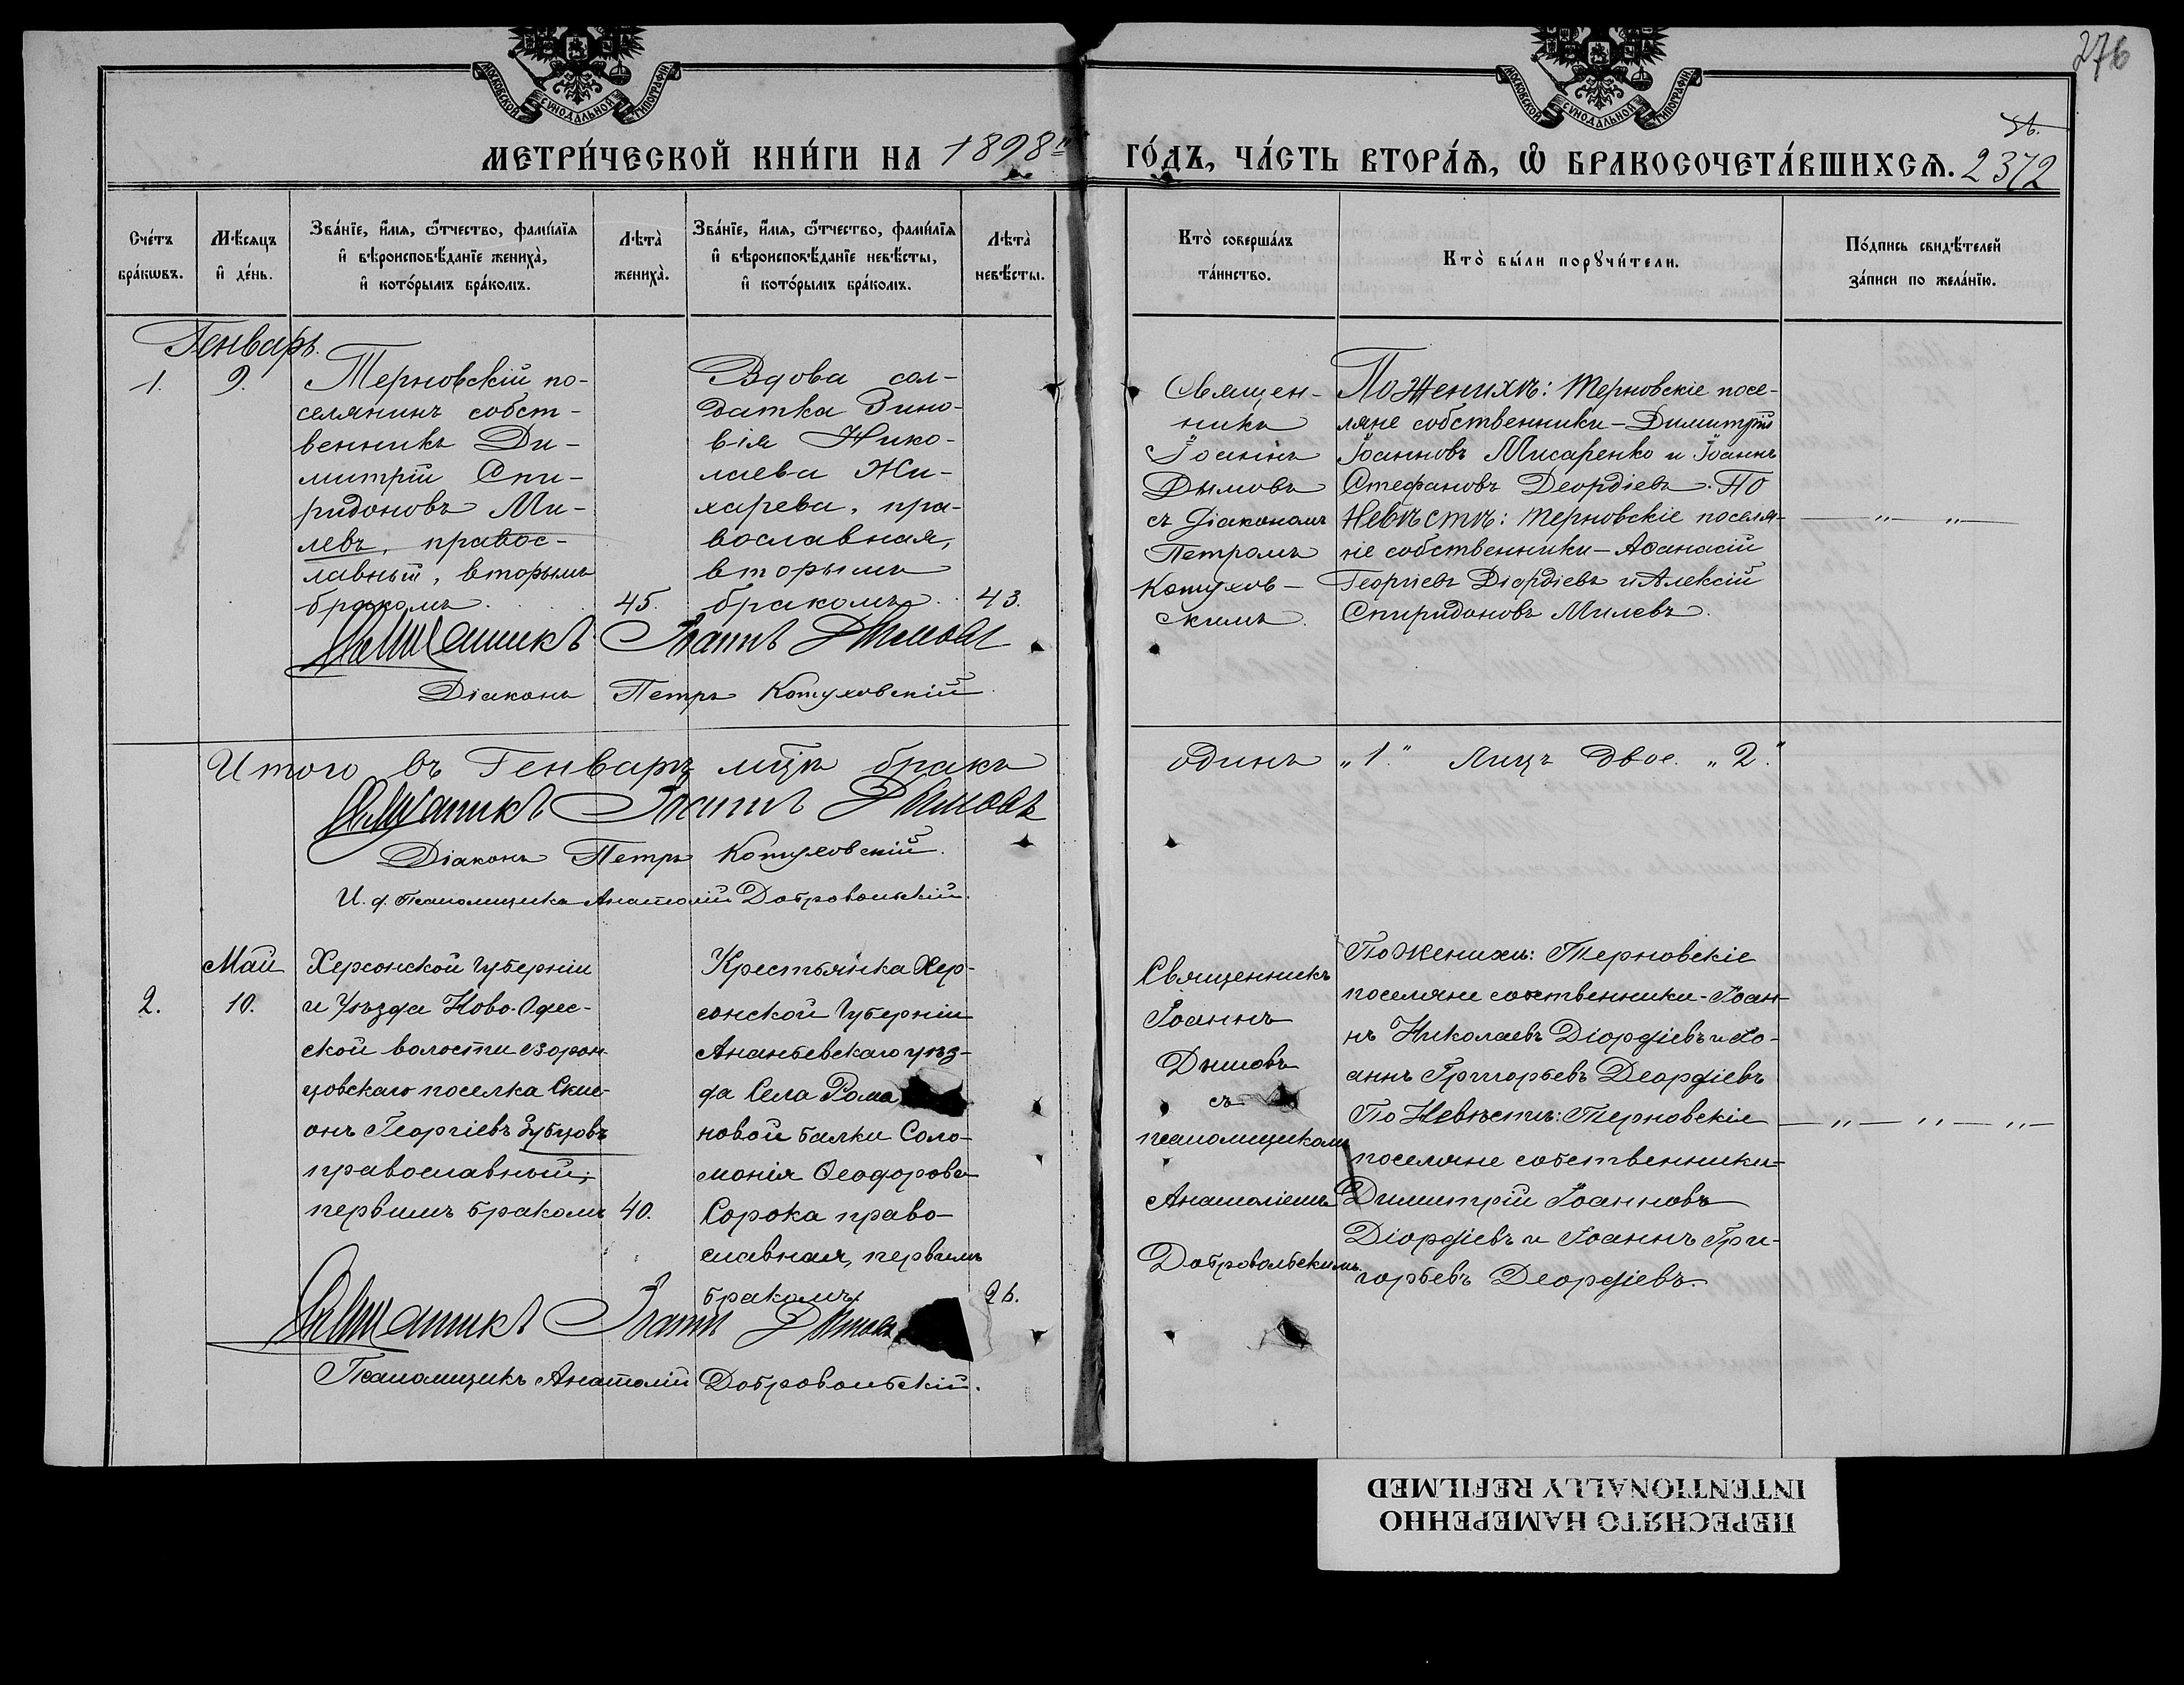 276
МОСКОВСКОЙ СѴНОДАЛЬНОЙ ТИПОГРАФІИ
МОСКОВСКОЙ СѴНОДАЛЬНОЙ ТИПОГРАФІИ
МЕТРИ́ЧЕСКОЙ КНИ́ГИ НА 1898й ГО́ДЪ, ЧА́СТЬ ВТОРА́Ѧ, Ѽ БРАКОСОЧЕТА́ВШИХСѦ. 2372
Сче́тъ бра́кѡвъ.
Мѣ́сѧцъ и҆ де́нь.
Зва́нїе, и҆́мѧ, ѻ҆́тчество, фамі́лїѧ
и҆ вѣроисповѣ́данїе жениха̀,
и҆ кото́рымъ бра́комъ.
Лѣта̀ жениха̀.
Зва́нїе, и҆́мѧ, ѻ҆́тчество, фамі́лїѧ
и҆ вѣроисповѣ́данїе невѣ́сты,
и҆ кото́рымъ бра́комъ.
Лѣта̀ невѣ́сты.
Кто̀ соверша́лъ та́инство.
Кто̀ бы́ли порꙋчи́тели.
По́дпись свидѣ́телей
за́писи по жела́нїю.
Генварь.
1.
9.
Терновскій по-
селянинъ собст-
венникъ Ди-
митрій Спи-
ридоновъ Ми-
левъ, правос-
лавный, вторымъ
бракомъ.
45.
Вдова сол-
датка Зино-
вія Нико-
лаева Жи-
харева, пра-
вославная,
вторымъ
бракомъ.
43.
Священ-
никъ
Іоаннъ
Дымовъ
съ Діакономъ
Петромъ
Котухов-
скимъ.
По Женихѣ: Терновскіе посе-
ляне собственники - Димитрій
Іоанновъ Писаренко и Іоаннъ
Стефановъ Деордіевъ. По
Невѣстѣ: Терновскіе поселя-
не собственники - Аѳанасій
Георгіевъ Діордіевъ и Алексій
Спиридоновъ Милевъ.
Священникъ Іоаннъ Дымовъ
Діаконъ Петръ Котуховскій.
Итого въ Генварѣ мцѣ бракъ одинъ „1.“ Лицъ двое. „2.“
Священникъ Іоаннъ Дымовъ
Діаконъ Петръ Котуховскій.
И. д. Псаломщика Анатолій Добровольскій.
Май
2.
10.
Херсонской Губерніи
и Уѣзда Ново-Одес-
ской волости Ворон-
цовскаго поселка Сим-
онъ Георгіевъ Зубцовъ
православный,
первымъ бракомъ
40.
Крестьянка Хер-
сонской Губерніи
Ананьевскаго уѣз-
да Села Рома
новой балки Соло-
монія Ѳеодорова
Сорока право-
славная, первымъ
бракомъ
26.
Священникъ
Іоаннъ
Дымовъ
съ
псаломщикомъ
Анатоліемъ
Добровольскимъ.
По Женихѣ: Терновскіе
поселяне собственники - Іоан-
нъ Николаевъ Діордіевъ и Іо-
аннъ Григорьевъ Деордіевъ
По Невѣстѣ: Терновскіе
поселяне собственники =
Димитрій Іоанновъ
Діордіевъ и Іоаннъ Гри-
горьевъ Деордіевъ
Священникъ Іоаннъ Дымовъ
Псаломщикъ Анатолій Добровольскій.
ПЕРЕСНЯТО НАМЕРЕННО
INTENTIONALLY REFILMED